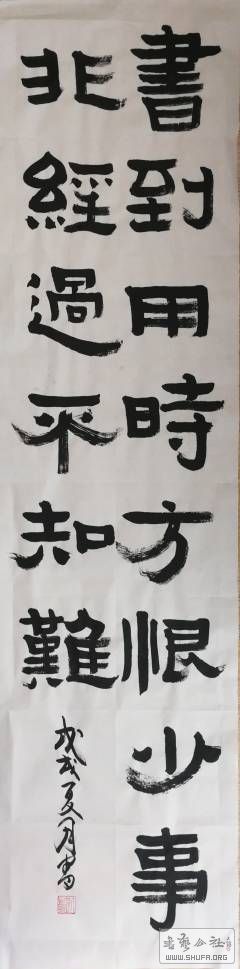 書到用時方恨少事
非經過不知難
戊戌夏月書
書藝公社
WWW.SHUFA.ORG